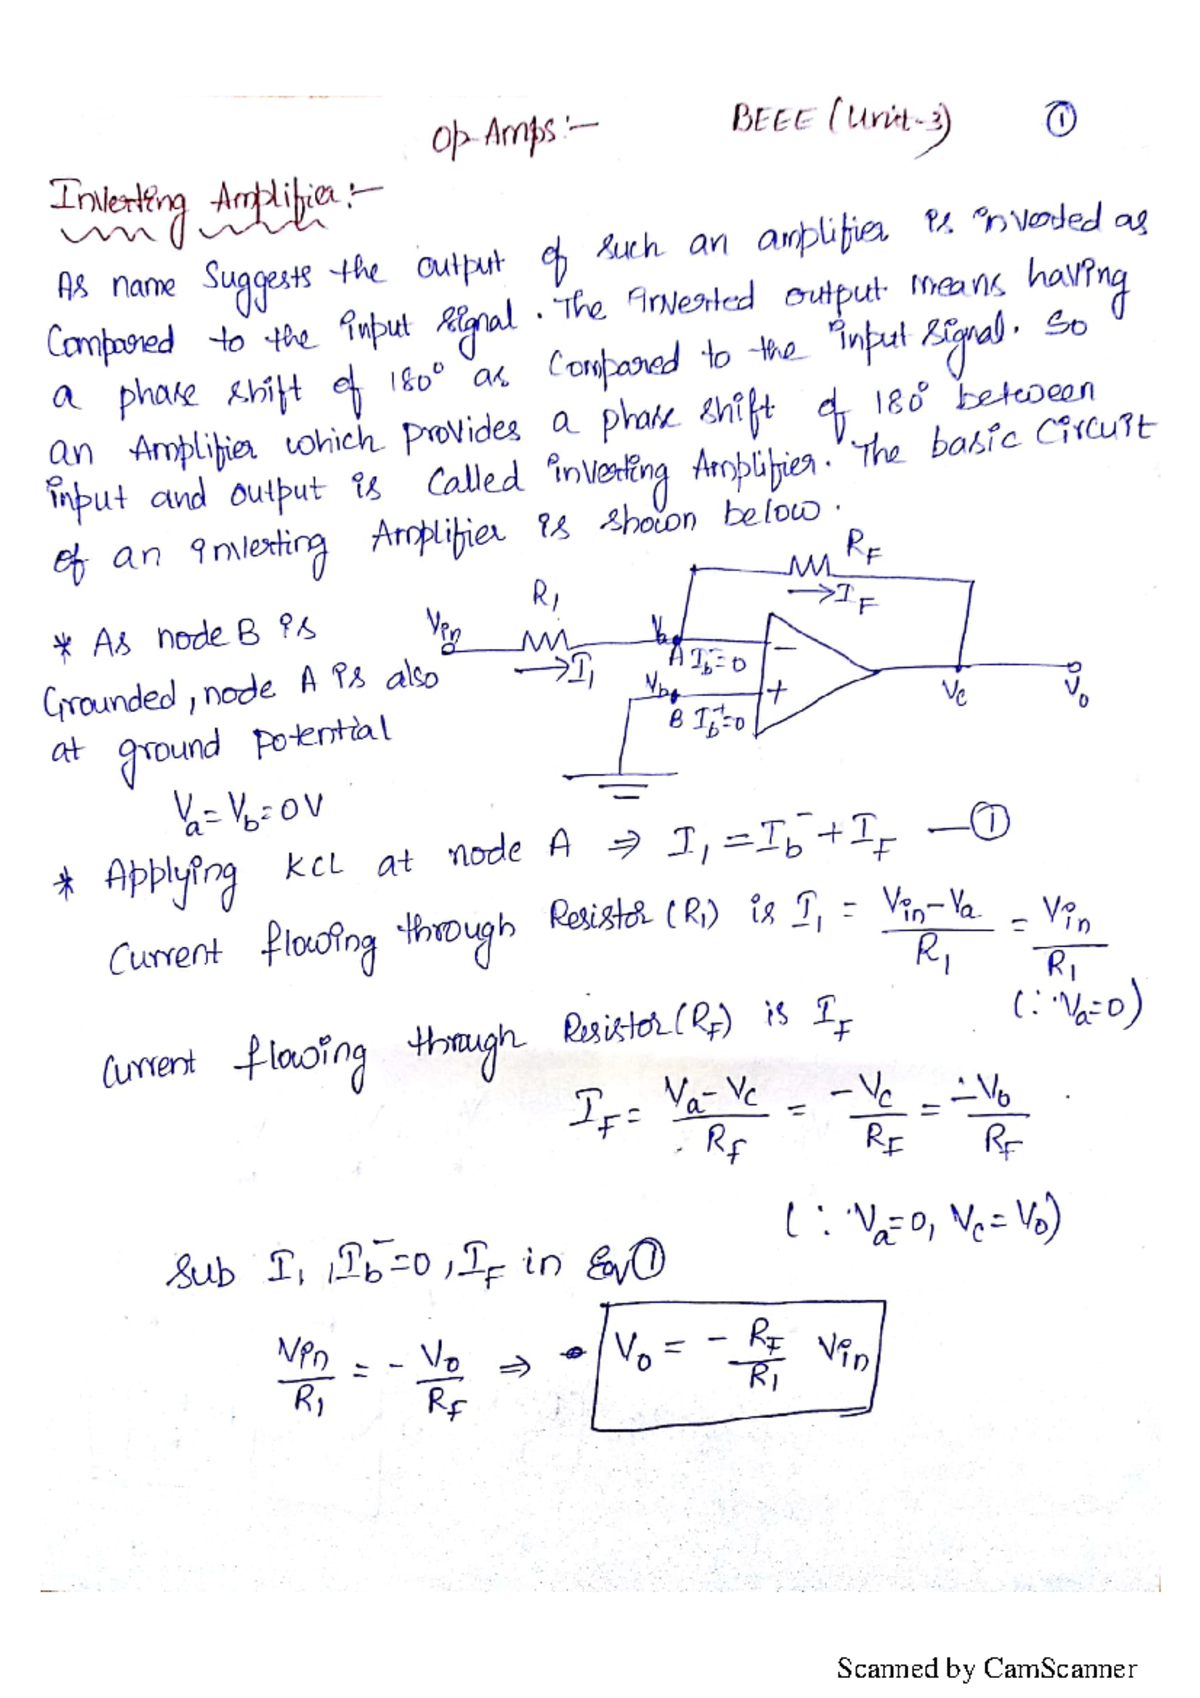 Op-Amps:- BEEE (Unit-3) 1
Inverting Amplifier:-
As name Suggests the output of such an amplifier is inverted as
Compared to the input signal. The inverted output means having
a phase shift of 180° as compared to the input signal. So
an Amplifier which provides a phase shift of 180° between
input and output is called inverting Amplifier. The basic circuit
of an inverting Amplifier is shown below.
* As node B is
Grounded, node A is also
at ground potential
Va = Vb = 0V
Vin R1 I1 RF IF
Va A Ib⁻=0 −
Vb B Ib⁺=0 +
Vc Vo
* Applying KCL at node A ⇒ I1 = Ib⁻ + IF — ①
Current flowing through Resistor (R1) is I1 = (Vin - Va)/R1 = Vin/R1
(∵ Va=0)
Current flowing through Resistor (RF) is IF
IF = (Va - Vc)/Rf = -Vc/RF = -Vo/RF
(∵ Va=0, Vc = Vo)
Sub I1, Ib⁻=0, IF in Eq ①
Vin/R1 = - Vo/RF ⇒ Vo = - RF/R1 Vin
Scanned by CamScanner